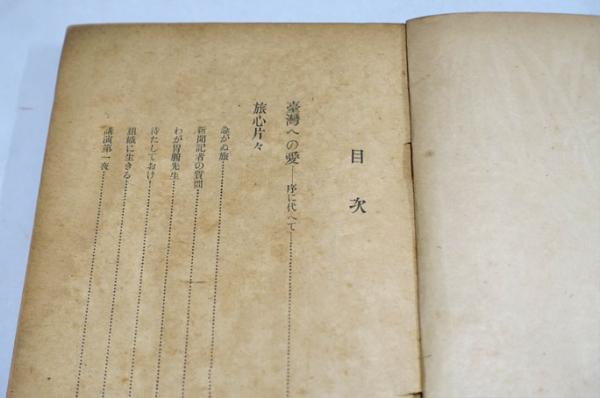 目次
臺灣への愛――序に代へて
旅心片々
急がぬ旅
新聞記者の質問
わが胃腸先生
待たしておけ
組織に生きる
講演第一夜